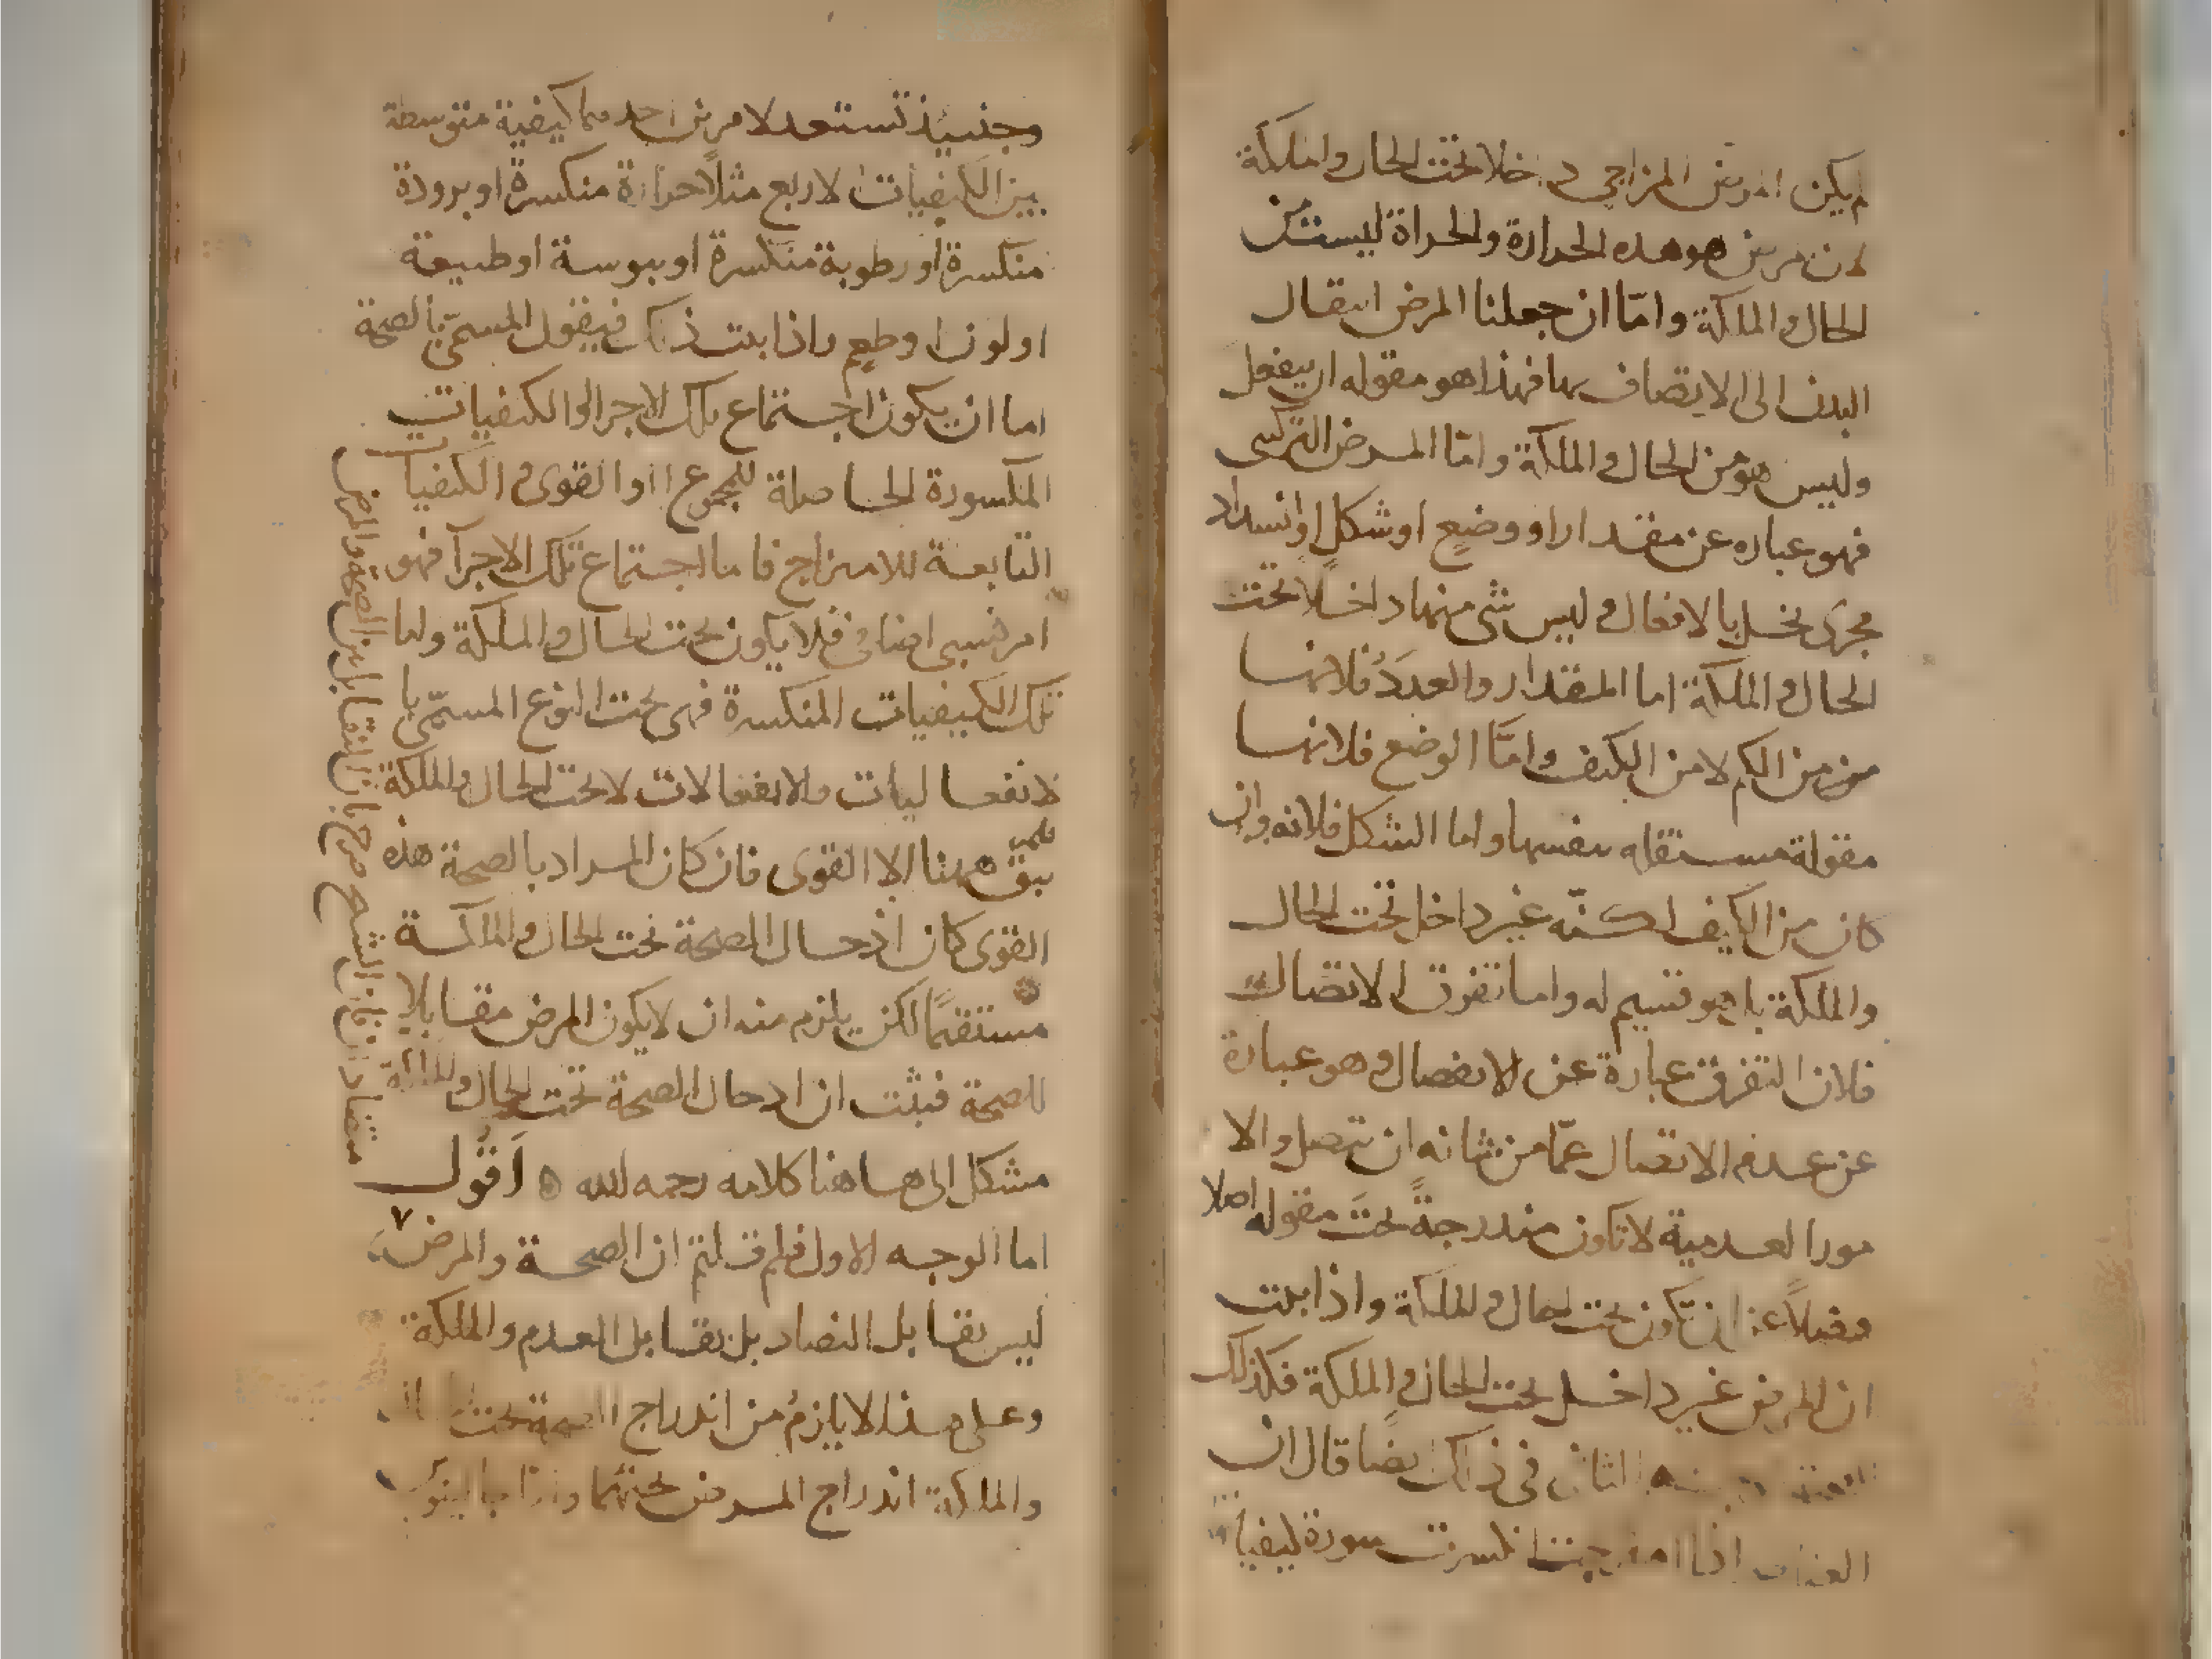 لم يكن المرض المزاجي داخلا تحت الحال والملكة
لان مرض هو هذه الحرارة والحراة ليست من
الحال والملكة وامّا ان جعلنا المرض انتقال
البدن الى الاتصاف بها فهذا هو مقوله ان ينفعل
وليس هو من الحال والملكة وامّا المرض التركيبى
فهو عباره عن مقدار او وضعٍ او شكلٍ او انسداد
مجرى يخل بالافعال وليس شى منهما داخلًا تحت
الحال والملكة اما المقدار والعددُ فلانها
من من الكم لا من الكيف وامَّا الوضع فلانها
مقولة مستقله بنفسها واما الشكل فلانه وان
كان من الكيف لكنّه غير داخل تحت الحال
والملكة بل هو قسيم له واما تفرق الاتصال
فلان التفرق عبارة عن الانفصال وهو عبارة
عن عدم الاتصال عمّا من شانه ان يتصل والا
مور العدمية لا تكون مندرجةً تحتَ مقوله اصلا
فضلاً عن ان تكون تحت الحال والملكة واذا ثبت
ان المرض غير داخل تحت الحال والملكة فكذلك
الثانى فى ذلك ايضًا قال ان
العناصر اذا امتزجت انكسرت سورة كيفياتها
وحينئيذ تستعد لا مرض احدهما كيفية متوسطة
بين الكيفيات الاربع مثلاً حرارة منكسرة او برودة
منكسرة او رطوبة منكسرة او يبوسة او طبيعة
او لون او طعم واذا ثبت ذلك فيقول المسمّى بالصحة
اما ان يكون اجتماع تلك الاجرا او الكيفيات
المكسورة الحاصلة للمجموع او القوى والكيفيات
التابعة للامتزاج فاما اجتماع تلك الاجرآ فهو
امر نسبى اضافى فلا يكون تحت الحال والملكة واما
تلك الكيفيات المنكسرة فهى تحت النوع المسمّى با
لانفعاليات والانفعالات لا تحت الحال والملكة
فلم
يبق ههنا الا القوى فان كان المراد بالصحة هذه
القوى كان ادخال الصحة تحت الحال والملكة
مستقيمًا لكن يلزم منه ان لا يكون المرض مقابلا
للصحة فثبت ان ادخال الصحة تحت الحال والملكة
مشكل الى هاهنا كلامه رحمه الله ه اَقُول
اما الوجه الاول فلم قلتم ان الصحة والمرض
ليس تقابل التضاد بل تقابل العدم والملكة
وعلى هذا لا يلزمُ من اندراج الصحة تحت الحال
والملكة اندراج المرض تحتهما
متضادان فان الشيخ صرح بان التقابل بين الصحة والمرض